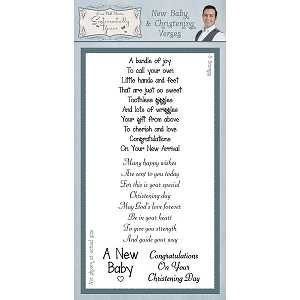 Sentimentally
Yours
New Baby
& Christening
Verses
A bundle of joy
To call your own
Little hands and feet
That are just so sweet
Toothless giggles
And lots of wriggles
Your gift from above
To cherish and love
Congratulations
On Your New Arrival
Many happy wishes
Are sent to you today
For this is your special
Christening day
May God's love forever
Be in your heart
To give you strength
And guide your way
A New
Baby
Congratulations
On Your
Christening Day